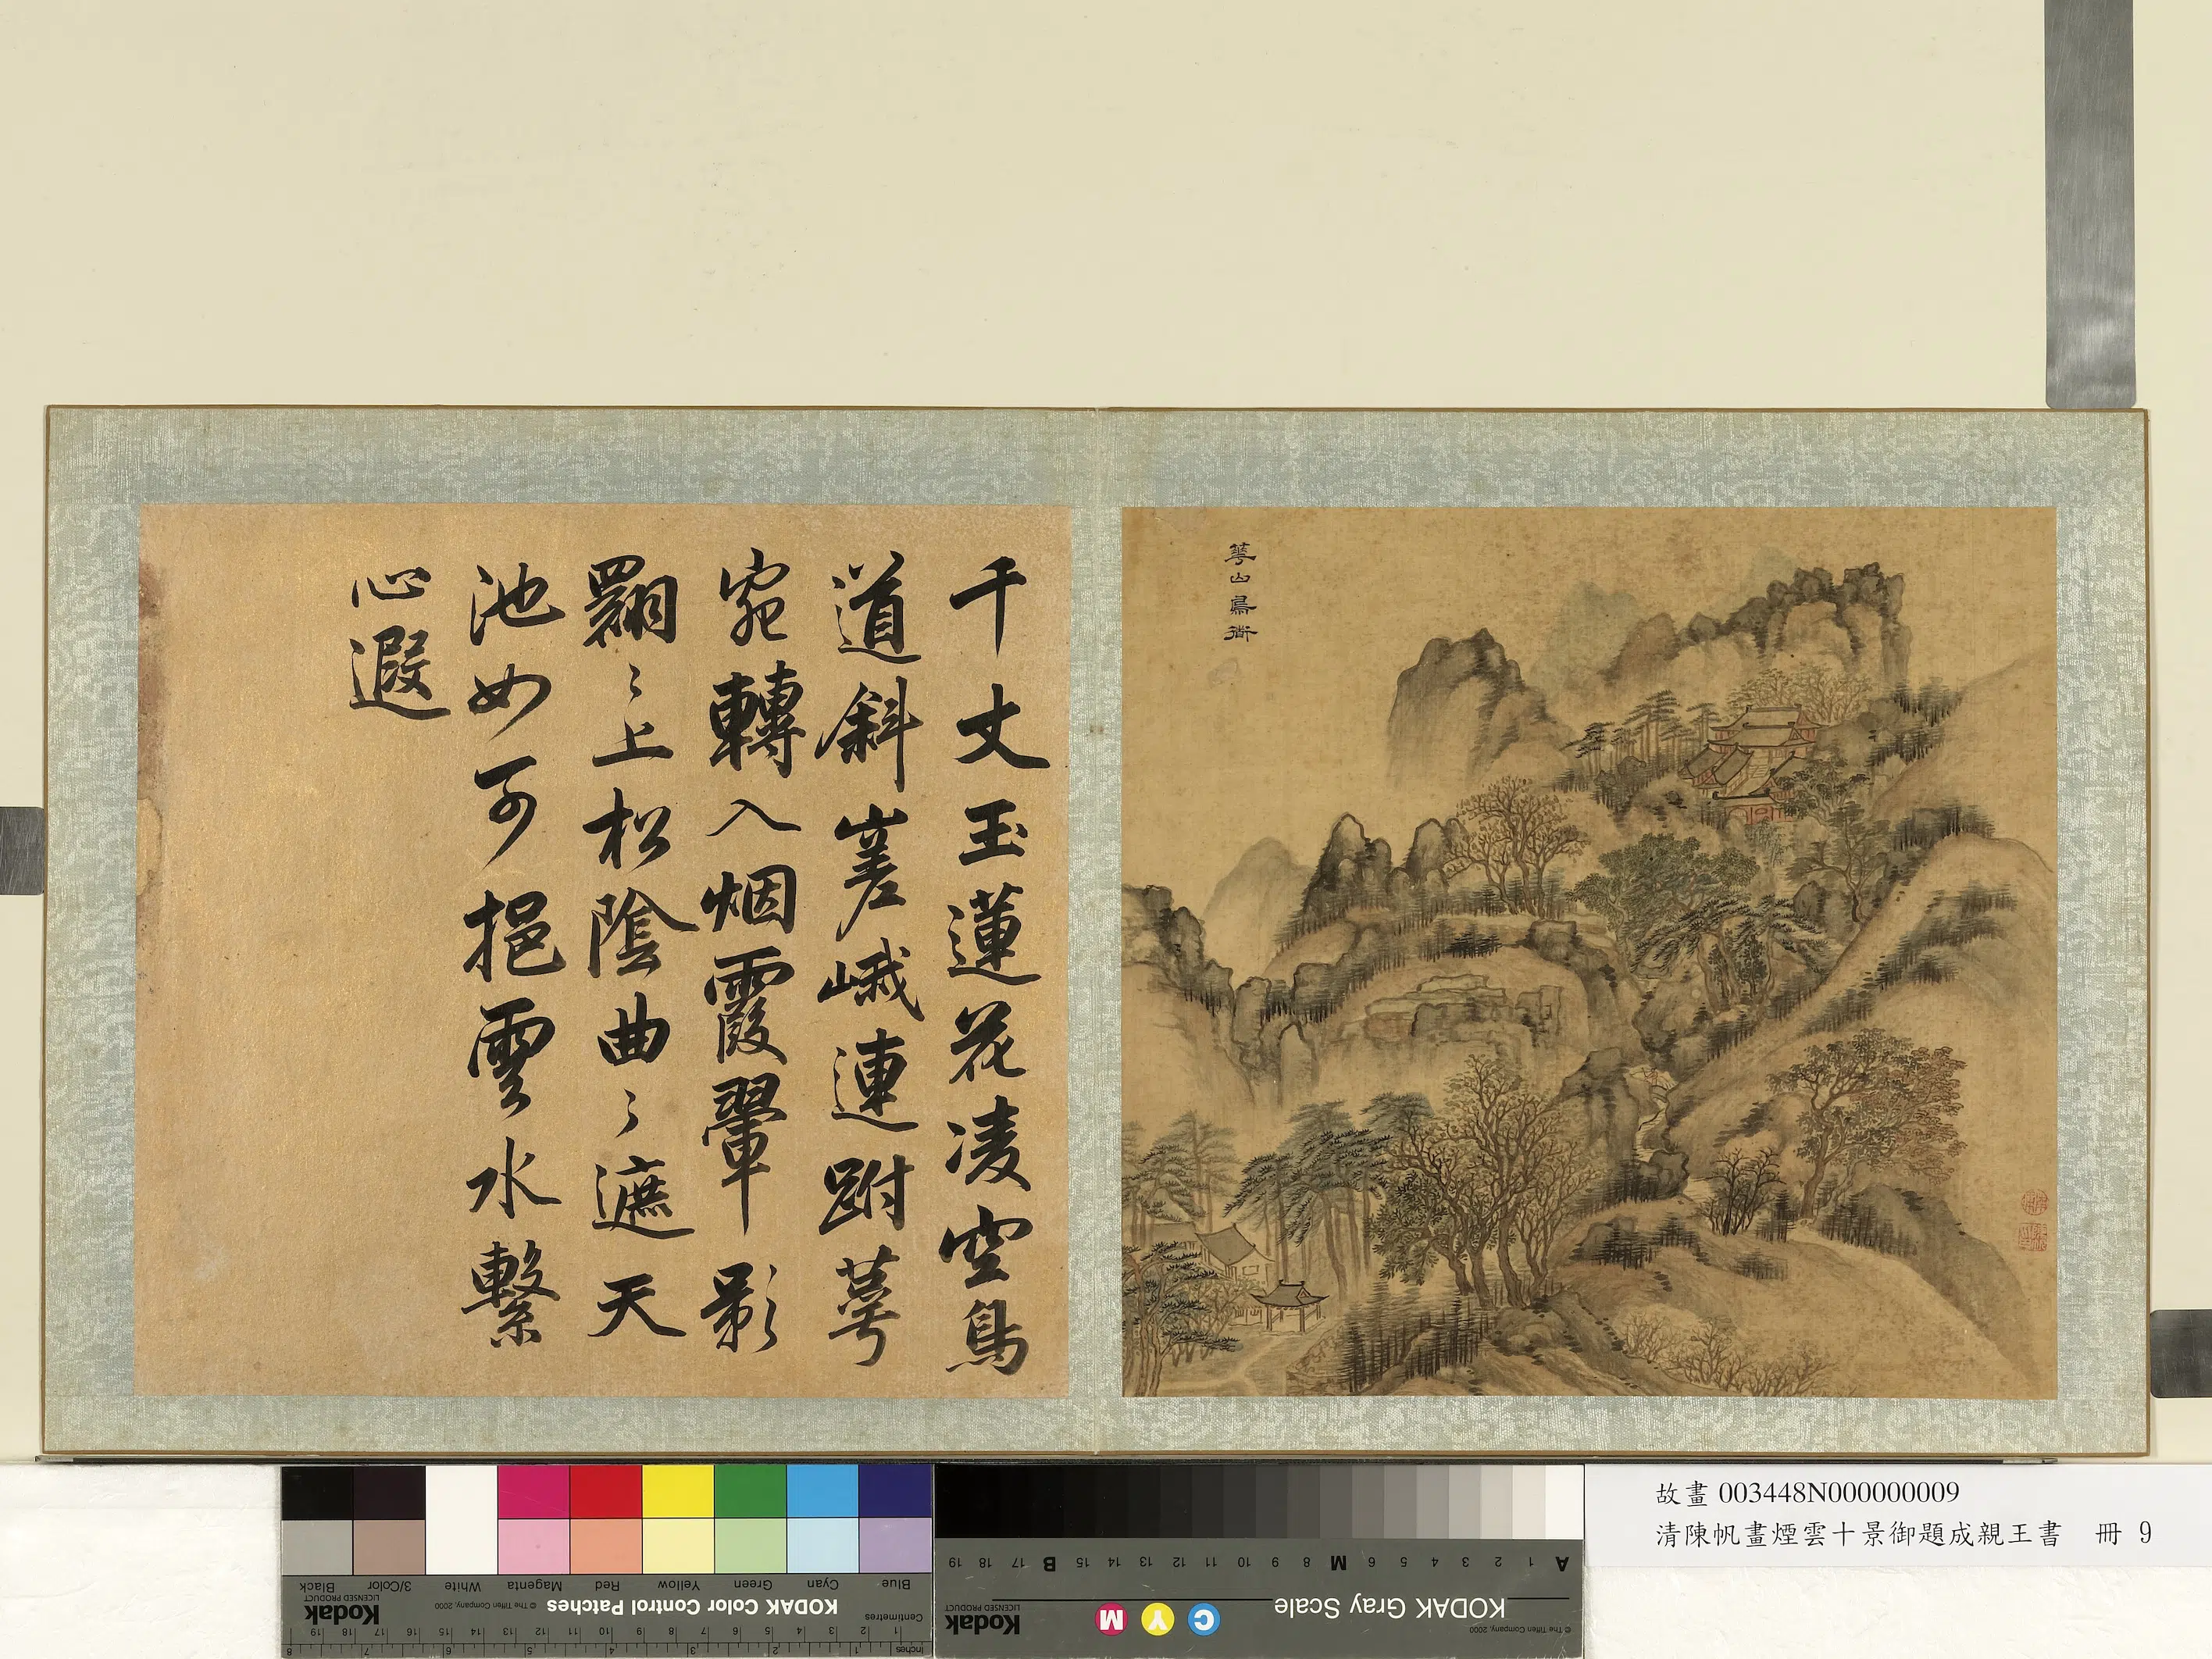 華山鳥衜
千丈玉蓮花凌空鳥
道斜嵳峨連跗萼
宛轉入烟霞翬影
翾〻上松陰曲〻遮天
池如可挹雲水繫
心遐
故畫 003448N000000009
清陳帆畫煙雲十景御題成親王書 冊 9
KODAK Gray Scale
C Y M
Kodak
LICENSED PRODUCT
© The Tiffen Company, 2000
A 1 2 3 4 5 6 M 8 9 10 11 12 13 14 15 B 17 18 19
KODAK Color Control Patches
Kodak
LICENSED PRODUCT
© The Tiffen Company, 2000
Blue Cyan Green Yellow Red Magenta White 3/Color Black
Centimetres
1 2 3 4 5 6 7 8 9 10 11 12 13 14 15 16 17 18 19
Inches
1 2 3 4 5 6 7 8